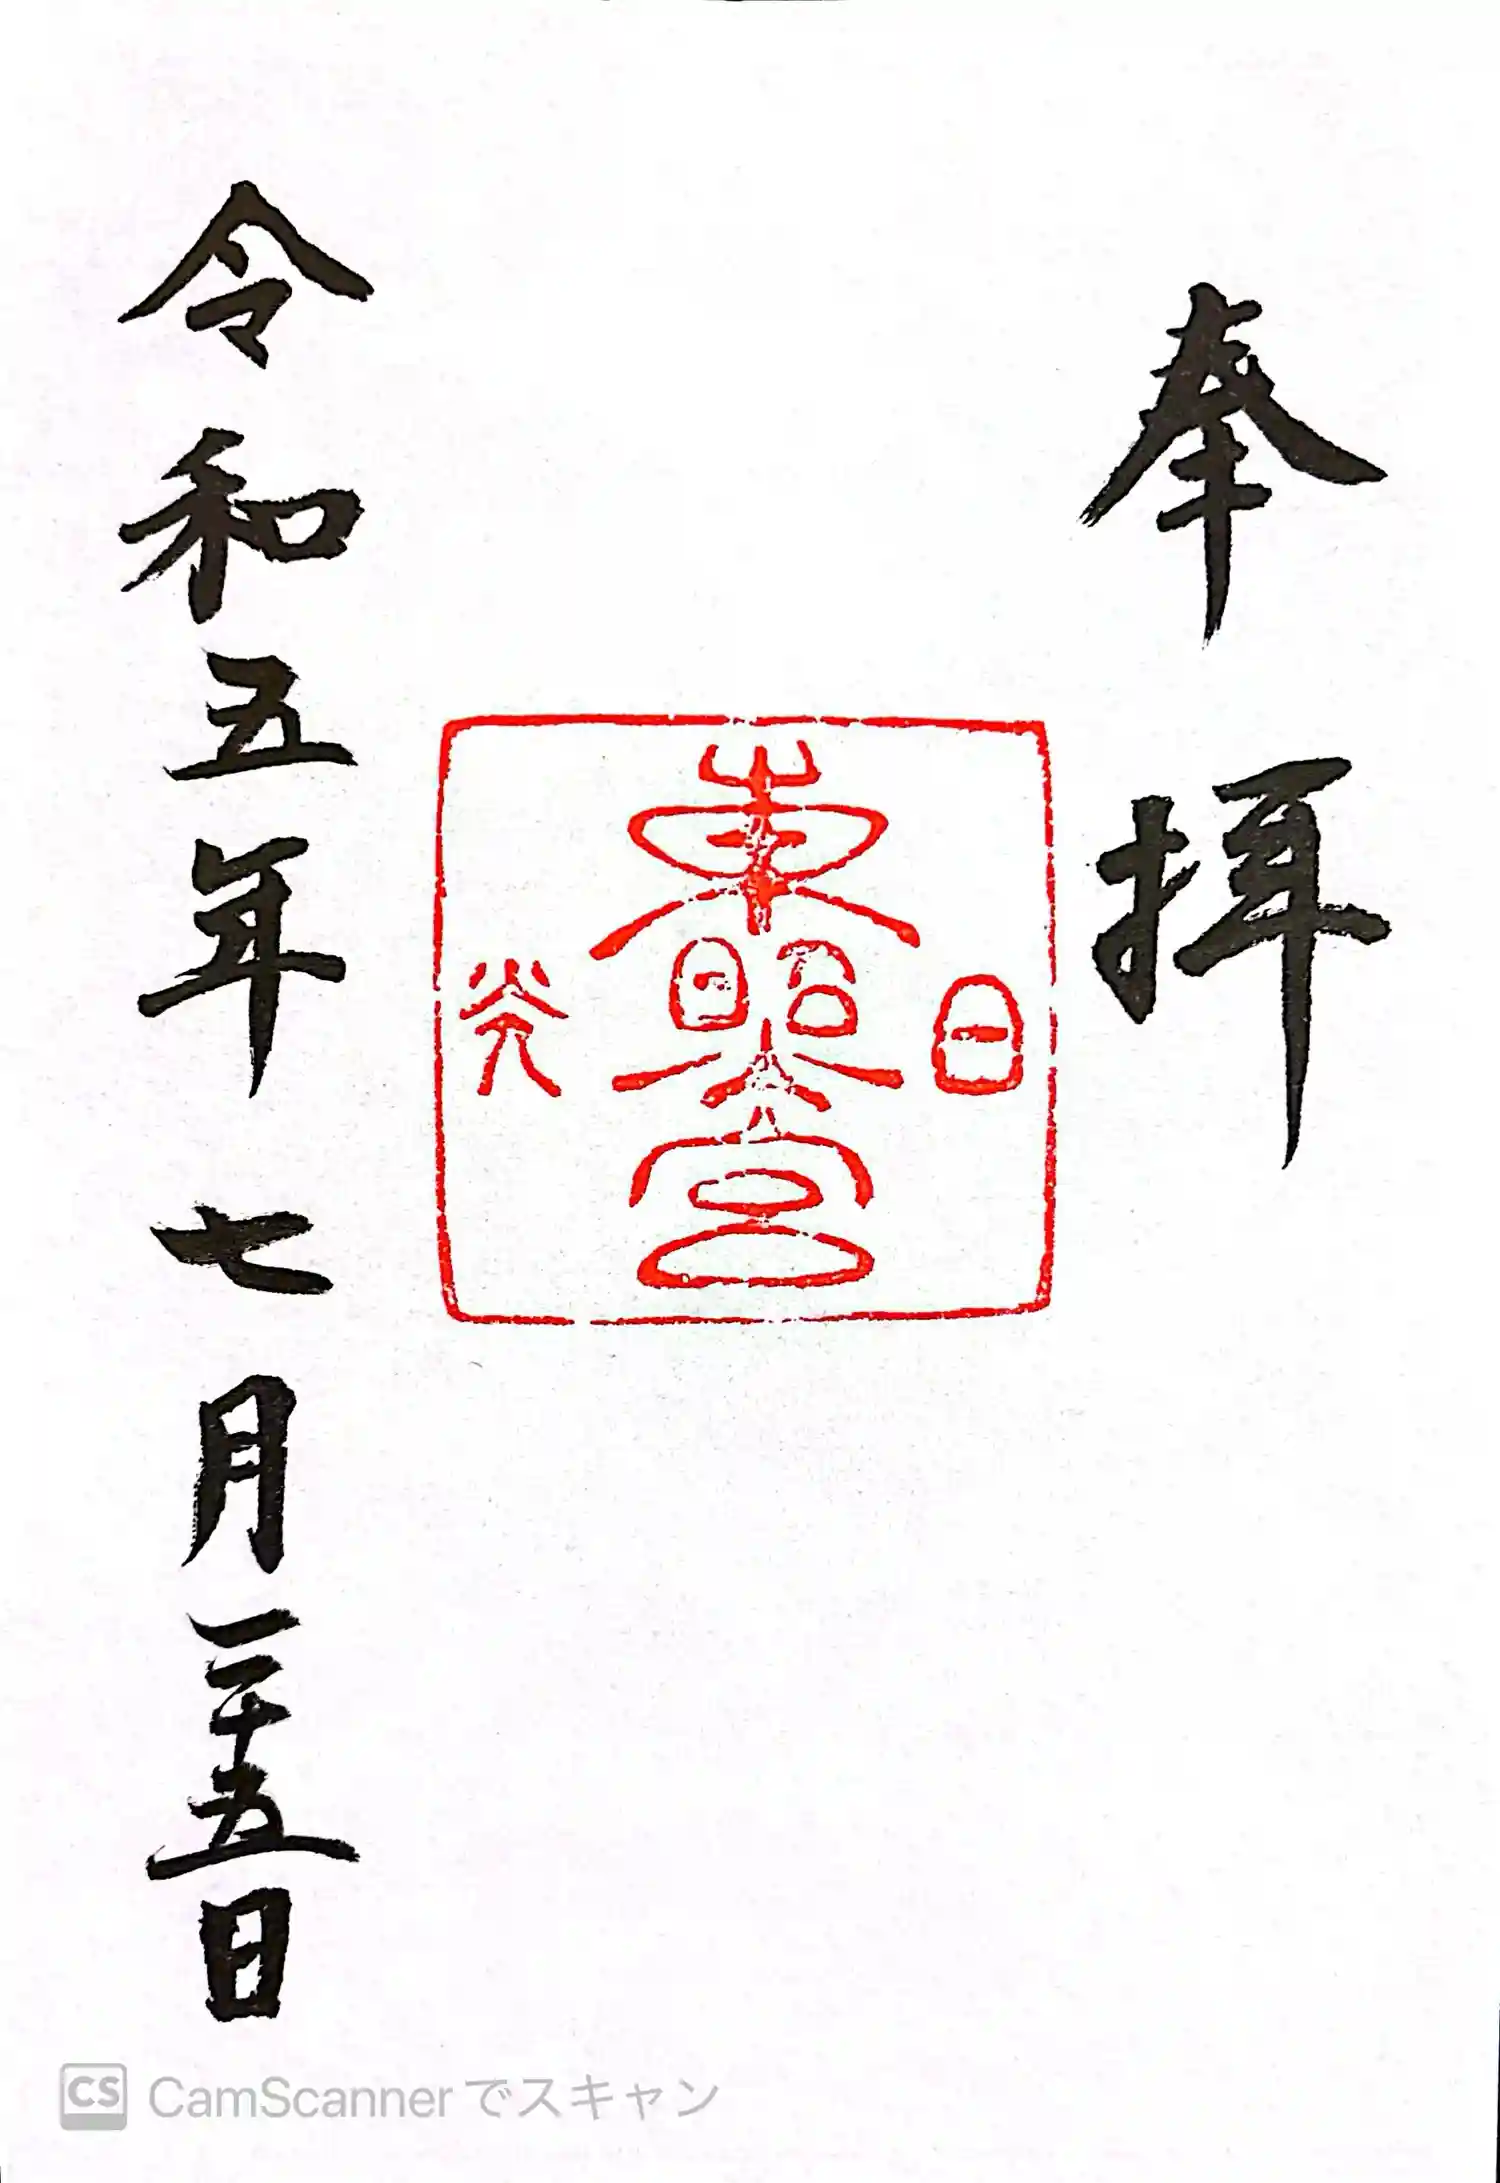 奉拝
日光
東照宮
令和五年七月二十五日
CS CamScannerでスキャン